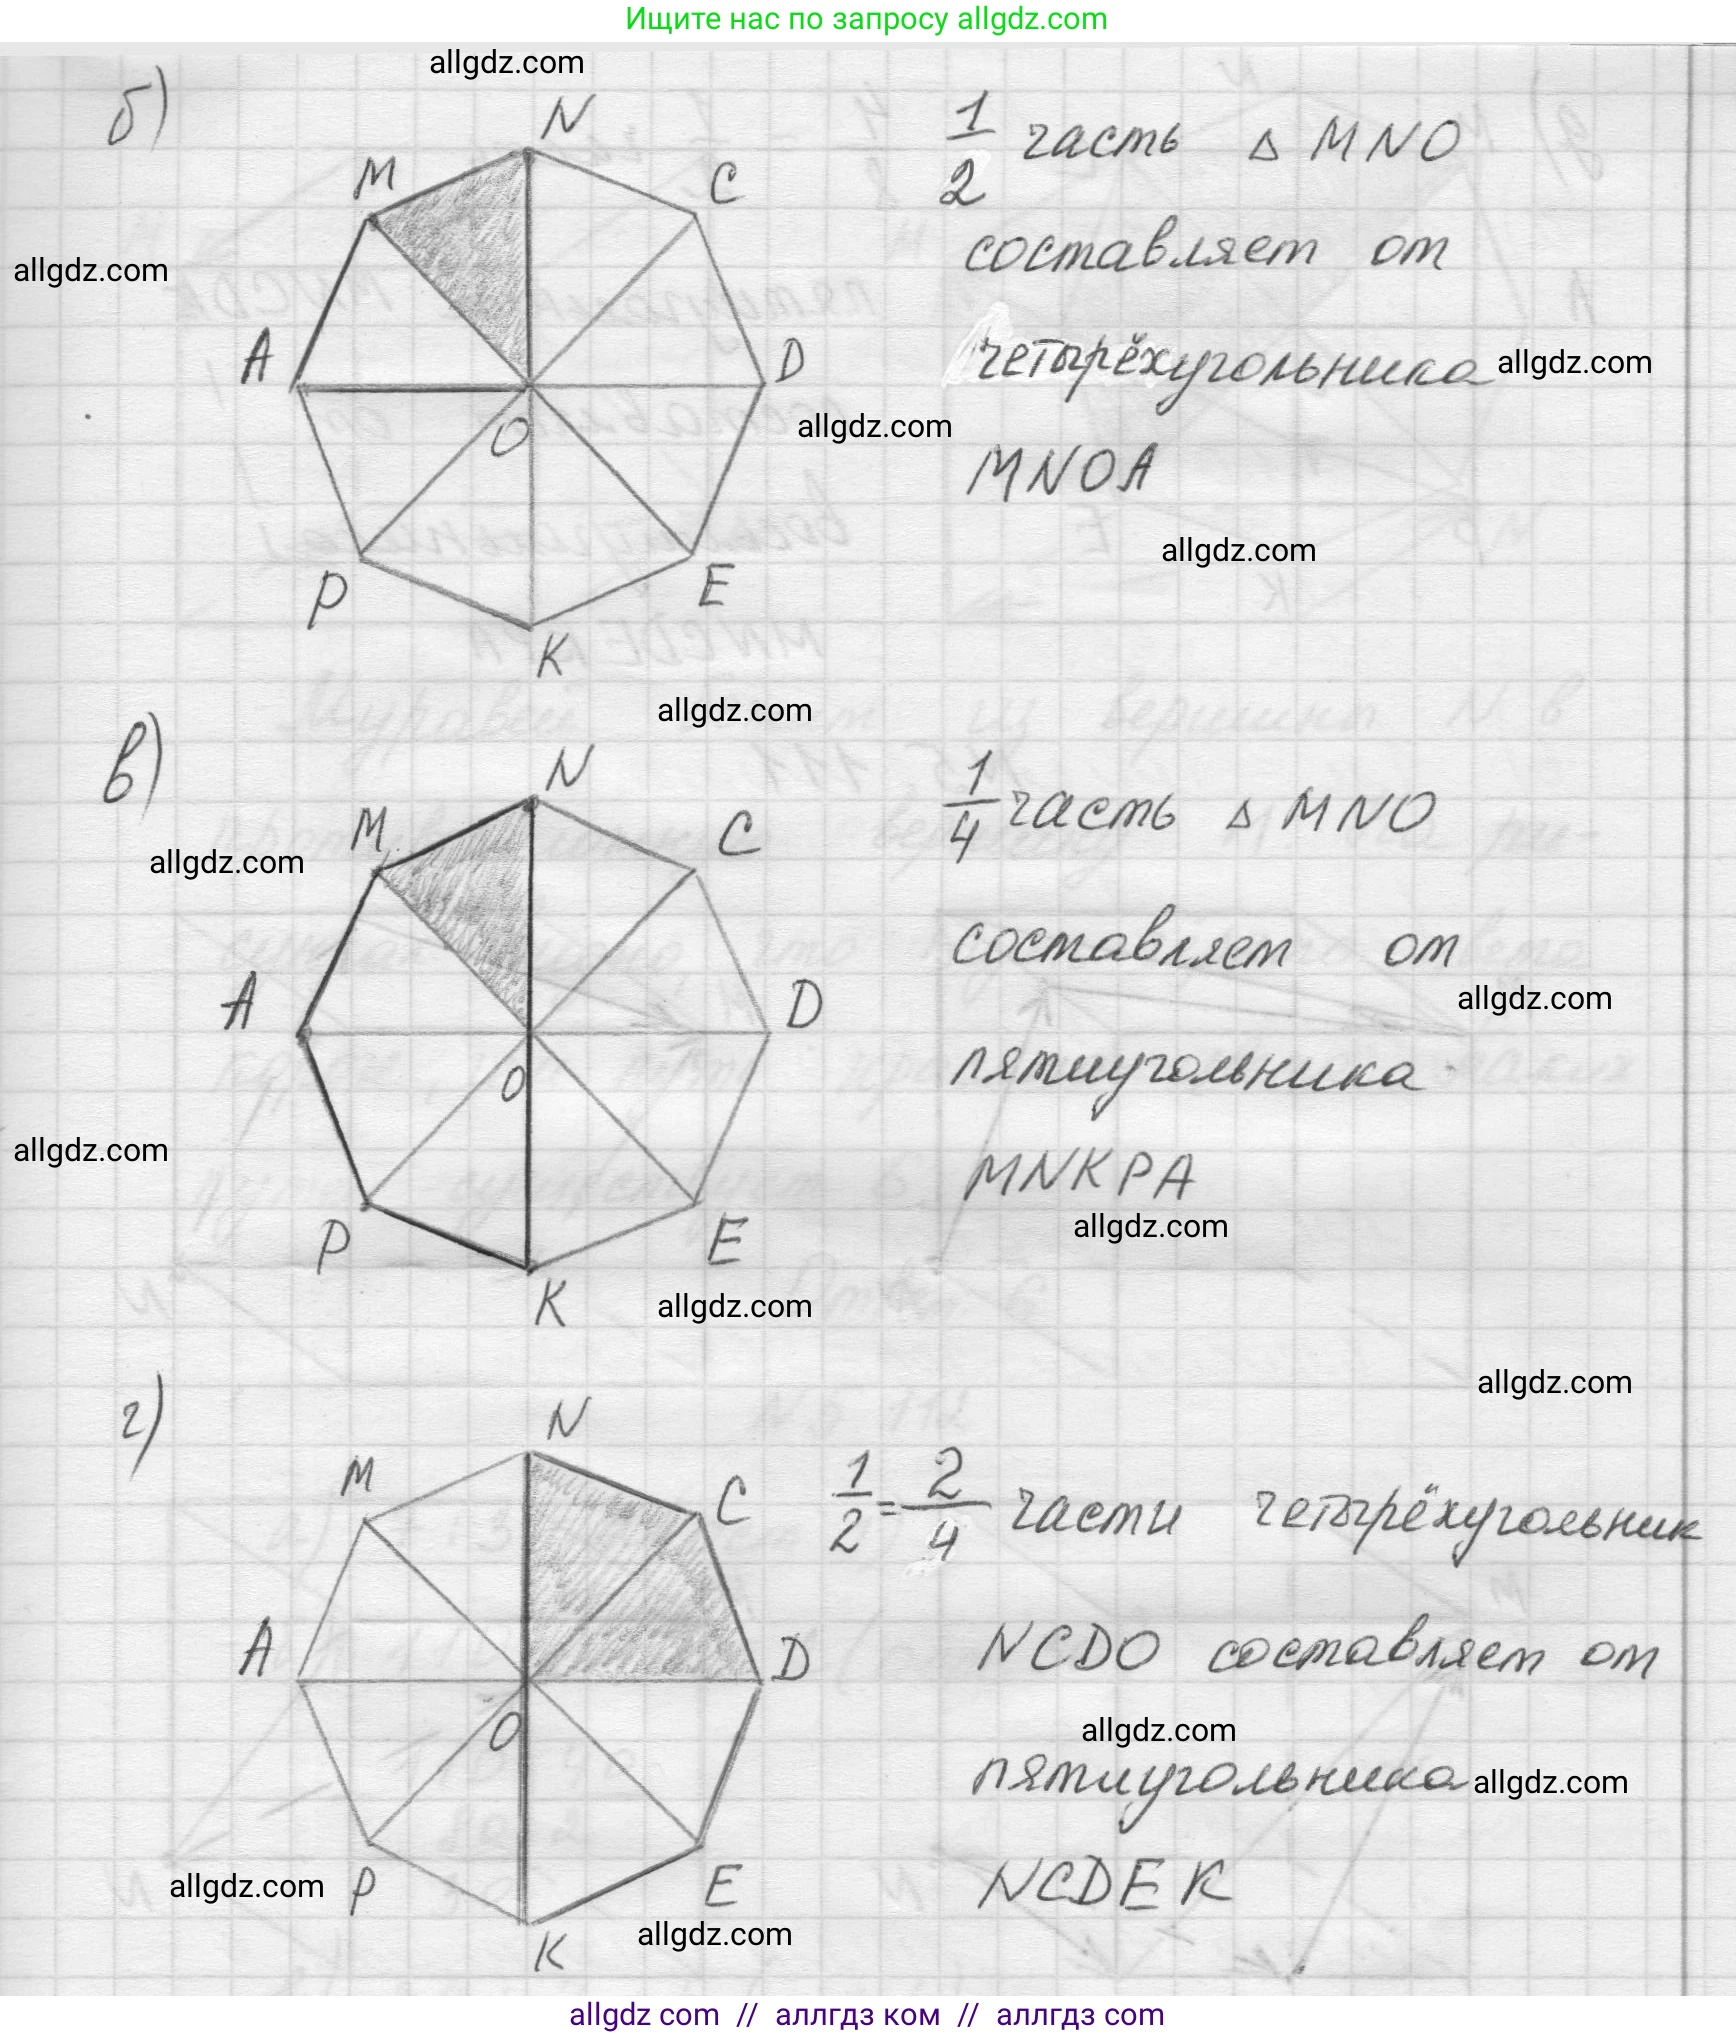 Ищите нас по запросу allgdz.com
allgdz.com
б)
N
M
C
allgdz.com
A
D
O
P
E
K
1/2 часть △ MNO
составляет от
четырёхугольника allgdz.com
allgdz.com
MNOA
allgdz.com
allgdz.com
в)
N
M
C
allgdz.com
A
D
O
allgdz.com
P
E
K
1/4 часть △ MNO
составляет от
allgdz.com
пятиугольника
MNKPA
allgdz.com
allgdz.com
allgdz.com
г)
N
M
C
A
D
O
P
E
K
1/2 = 2/4 части четырёхугольник
NCDO составляет от
allgdz.com
пятиугольника allgdz.com
NCDEK
allgdz.com
allgdz.com
allgdz.com // аллгдз ком // аллгдз com